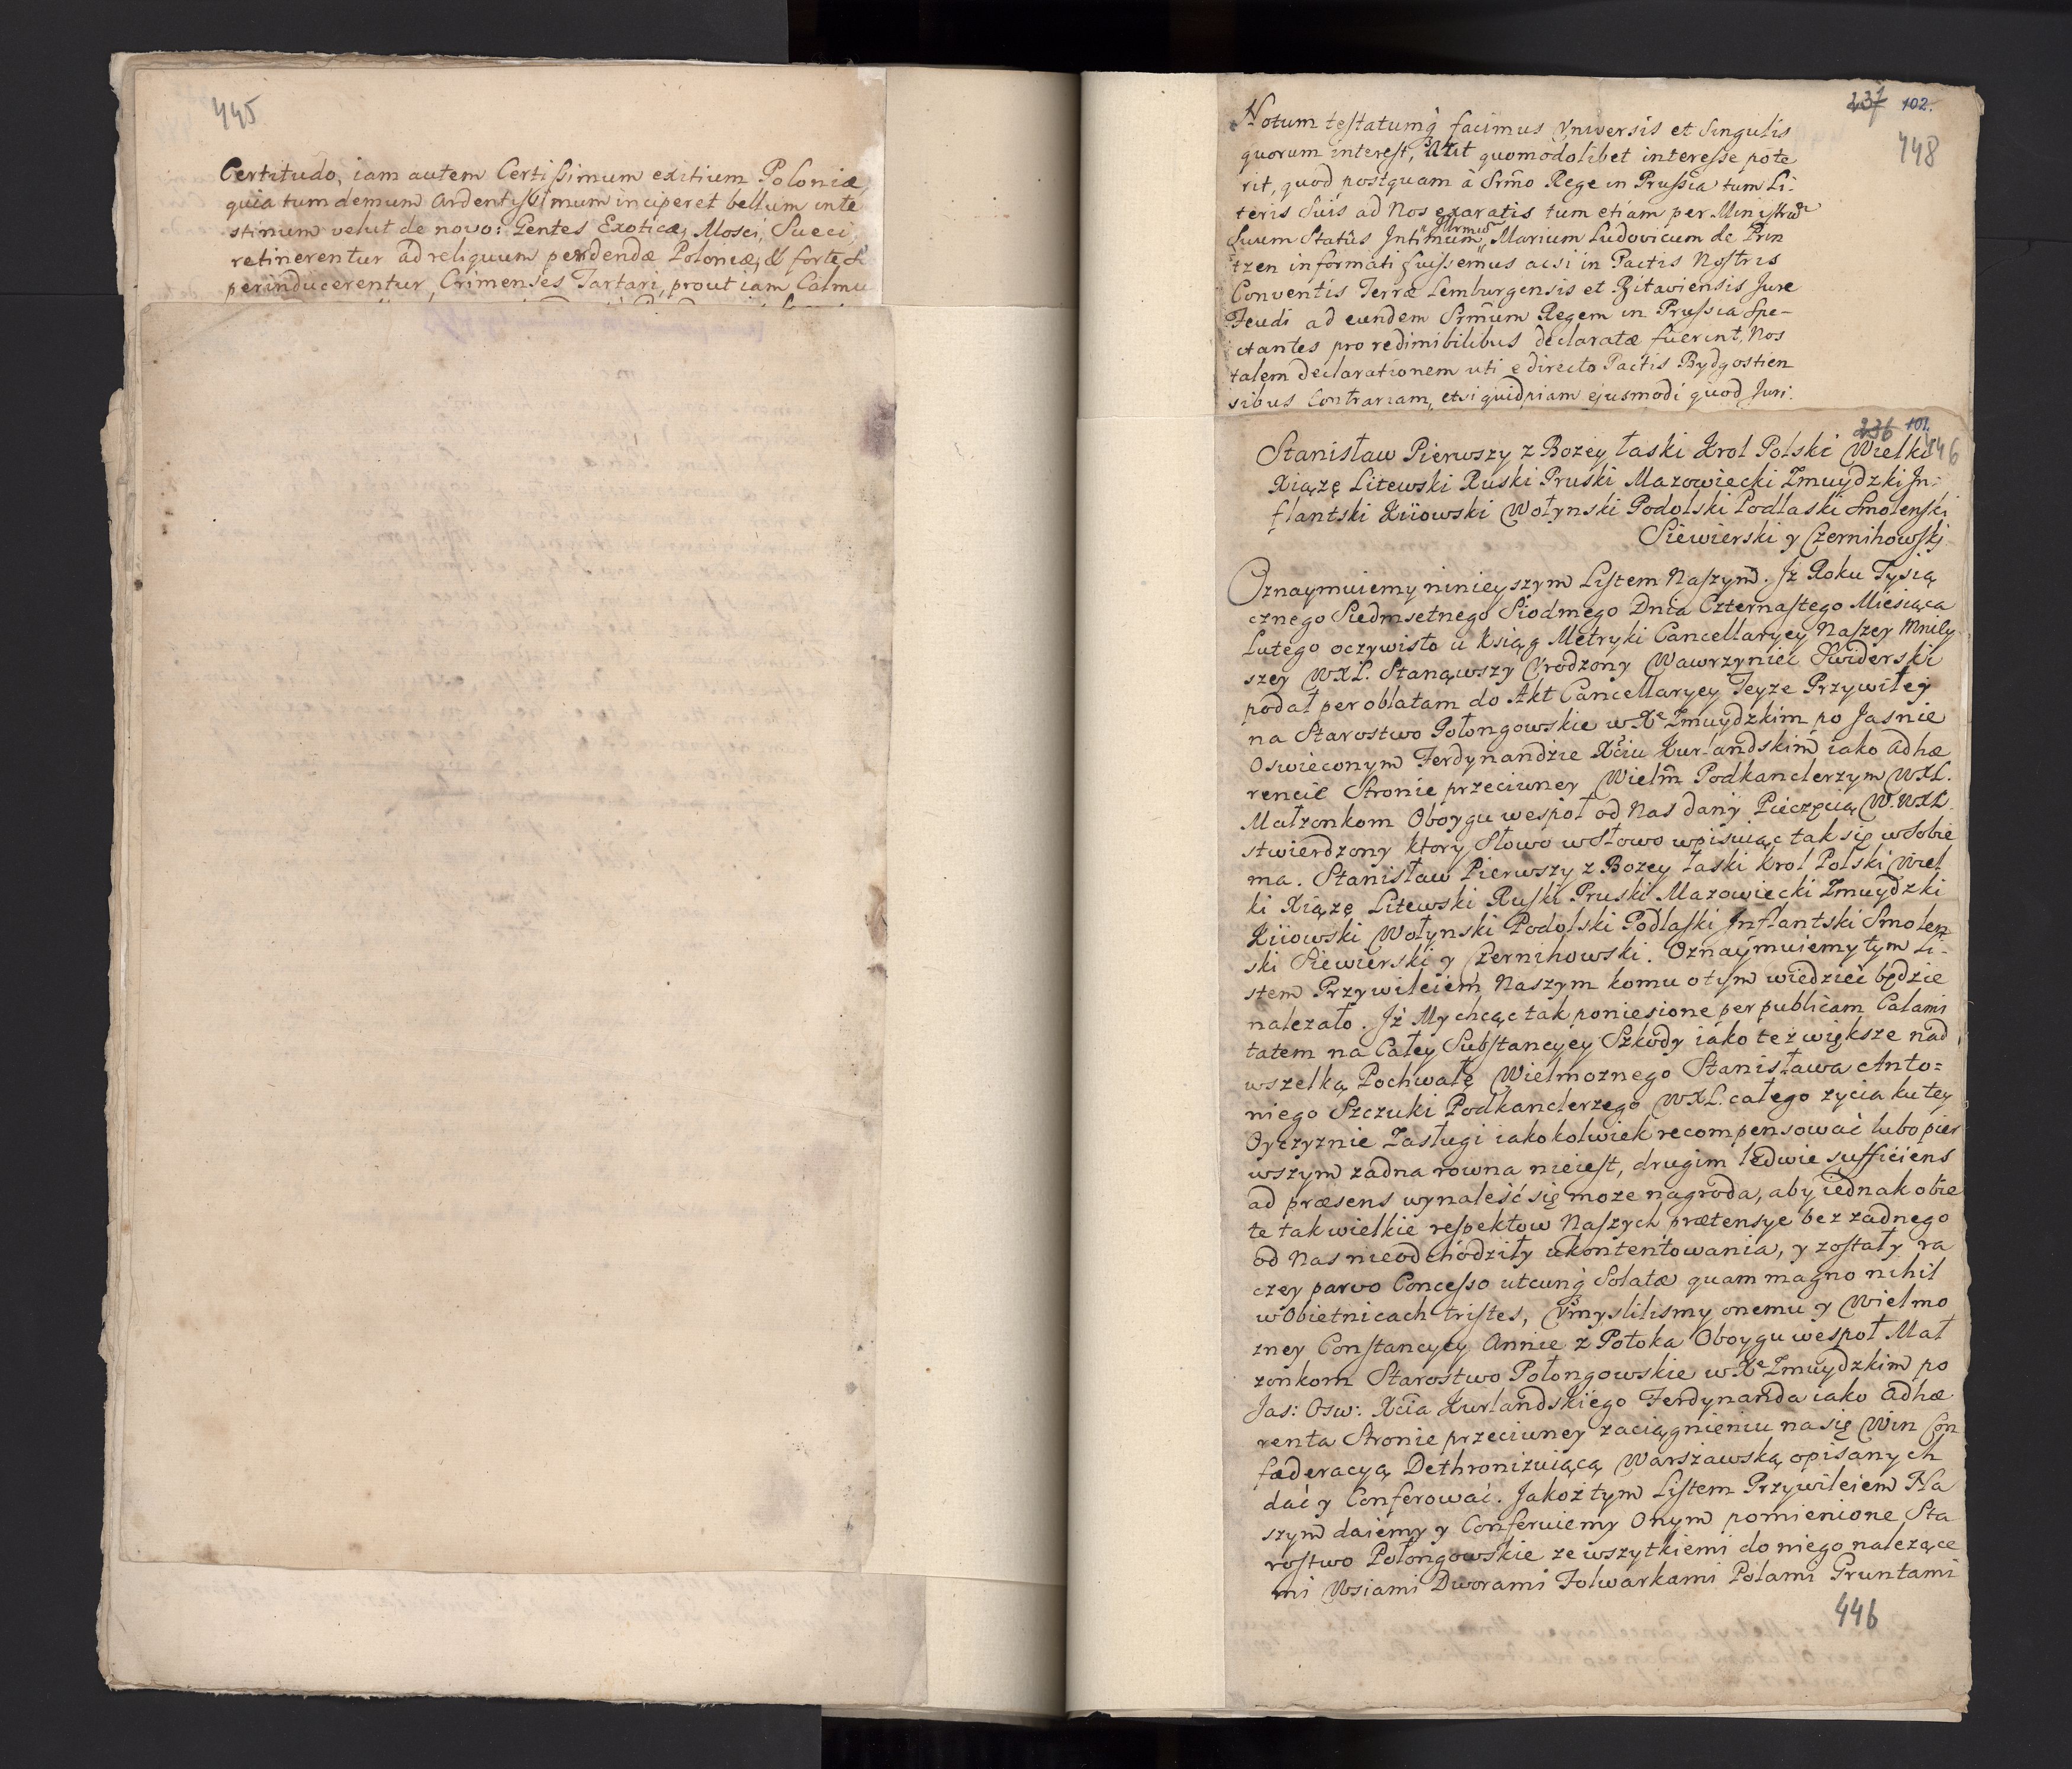 445
Certitudo, iam autem Certissimum exitium Poloniæ,
quia tum demum ardentissimum inciperet bellum inte
stinum velut de novo: Gentes Exoticæ, Mosci, Sueci,
retinerentur ad reliquum perdendæ Poloniæ, & forte &
perinducerentur, Crimenses Tartari, prout iam Calmu
237 102.
448
Notum testatumq̃ facimus Vniversis et Singulis
quorum interest, aut quomodolibet interesse pote
rit, quod postquam à Srm̃o Rege in Prussia tum Li-
teris Suis ad Nos exaratis tum etiam per Ministrum
Suum Statûs Intimum, Marium Ludovicum de Prin
tzen informati fuissemus acsi in Pactis Nostris
Conventis Terræ Lemburgensis et Bitaviensis Jure
Feudi ad eundem Srm̃um Regem in Prussia Spe-
ctantes pro redimibilibus declaratæ fuerint, Nos
talem declarationem uti e directo Pactis Bydgostien
sibus Contrariam, etsi quidpiam ejusmodi quod Juri
236 101.
446
Stanisław Pierwszy z Bozey łaski Krol Polski Wielki
Xiązę Litewski Ruski Pruski Mazowiecki Zmuydzki In-
flantski Kiiowski Wołynski Podolski Podlaski Smolenski
Siewierski y Czernihowski
Oznaymuiemy ninieyszym Listem Naszym. Jż Roku Tysią
cznego Siedmsetnego Siodmego Dnia Czternastego Miesiąca
Lutego oczywisto u ksiąg Metryki Cancellaryey Naszey Mnily
szey WXL. Stanąwszy Vrodzony Wawrzyniec Swiderski
podał per oblatam do Akt Cancellaryey Teyze Przywiley
na Starostwo Połongowskie w Xe Zmuydzkim po Jasnie
Oswieconym Ferdynandzie Xciu Kurlandskim iako adhæ
rencie Stronie przeciwney Wielm̃ Podkanclerzym WXL.
Małzonkom Oboygu wespoł od Nas dany Pieczęcią W. WXL.
stwierdzony ktory Słowo w Słowo wpisuiąc tak się w Sobie
ma. Stanisław Pierwszy z Bozey łaski Krol Polski Wiel
ki Xiązę Litewski Ruski Pruski Mazowiecki Zmuydzki
Kiiowski Wołynski Podolski Podlaski Inflantski Smolen
ski Siewierski y Czernihowski. Oznaymuiemy tym Li-
stem Przywileiem Naszym komu o tym wiedziec będzie
nalezało. Jż My chcąc tak poniesione per publicam Calami
tatem na Całey Substancyey Szkody iako tez większe nad
wszelką Pochwałę Wielmoznego Stanisława Anto=
niego Szczuki Podkanclerzego WXL. całego zycia ku tey
Oyczyznie Zasługi iakokolwiek recompensować lubo pier
wszym zadna rowna nieiest, drugim ledwie sufficiens
ad præsens wynaleść się moze nagroda, aby iednak obie
te tak wielkie respektow Naszych prætensye bez zadnego
od Nas nieodchodziły ukontentowania, y zostały ra
czey parvo Concesso utcunq̃ Solatæ quam magno nihil
w Obietnicach tristes, Vmyslilismy onemu y Wielmo
zney Constancyey Annie z Potoka Oboygu wespoł Mał
zonkom Starostwo Połongowskie w Xe Zmuydzkim po
Jas: Osw: Xcia Kurlandskiego Ferdynanda iako adhæ
renta Stronie przeciwney zaciągnieniu na się Win Con
fæderacyą Dethronizuiącą Warszawską opisanych
dać y Conferować. Jakoż tym Listem Przywileiem Na
szym daiemy y Conferuiemy Onym pomienione Sta
rostwo Połongowskie ze wszytkiemi do niego nalezące
mi Wsiami Dworami Folwarkami Polami Gruntami
446